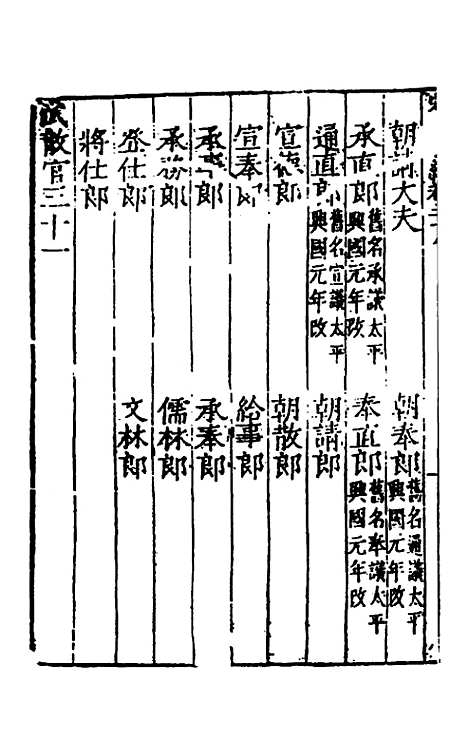 朝請大夫 朝奉郎舊名通議太平興國元年改
承直郎舊名承議太平興國元年改 奉直郎舊名奉議太平興國元年改
通直郎舊名宣議太平興國元年改 朝請郎
宣德郎 朝散郎
宣奉郎 給事郎
承事郎 承奉郎
承務郎 儒林郎
登仕郎 文林郎
將仕郎
武散官三十一